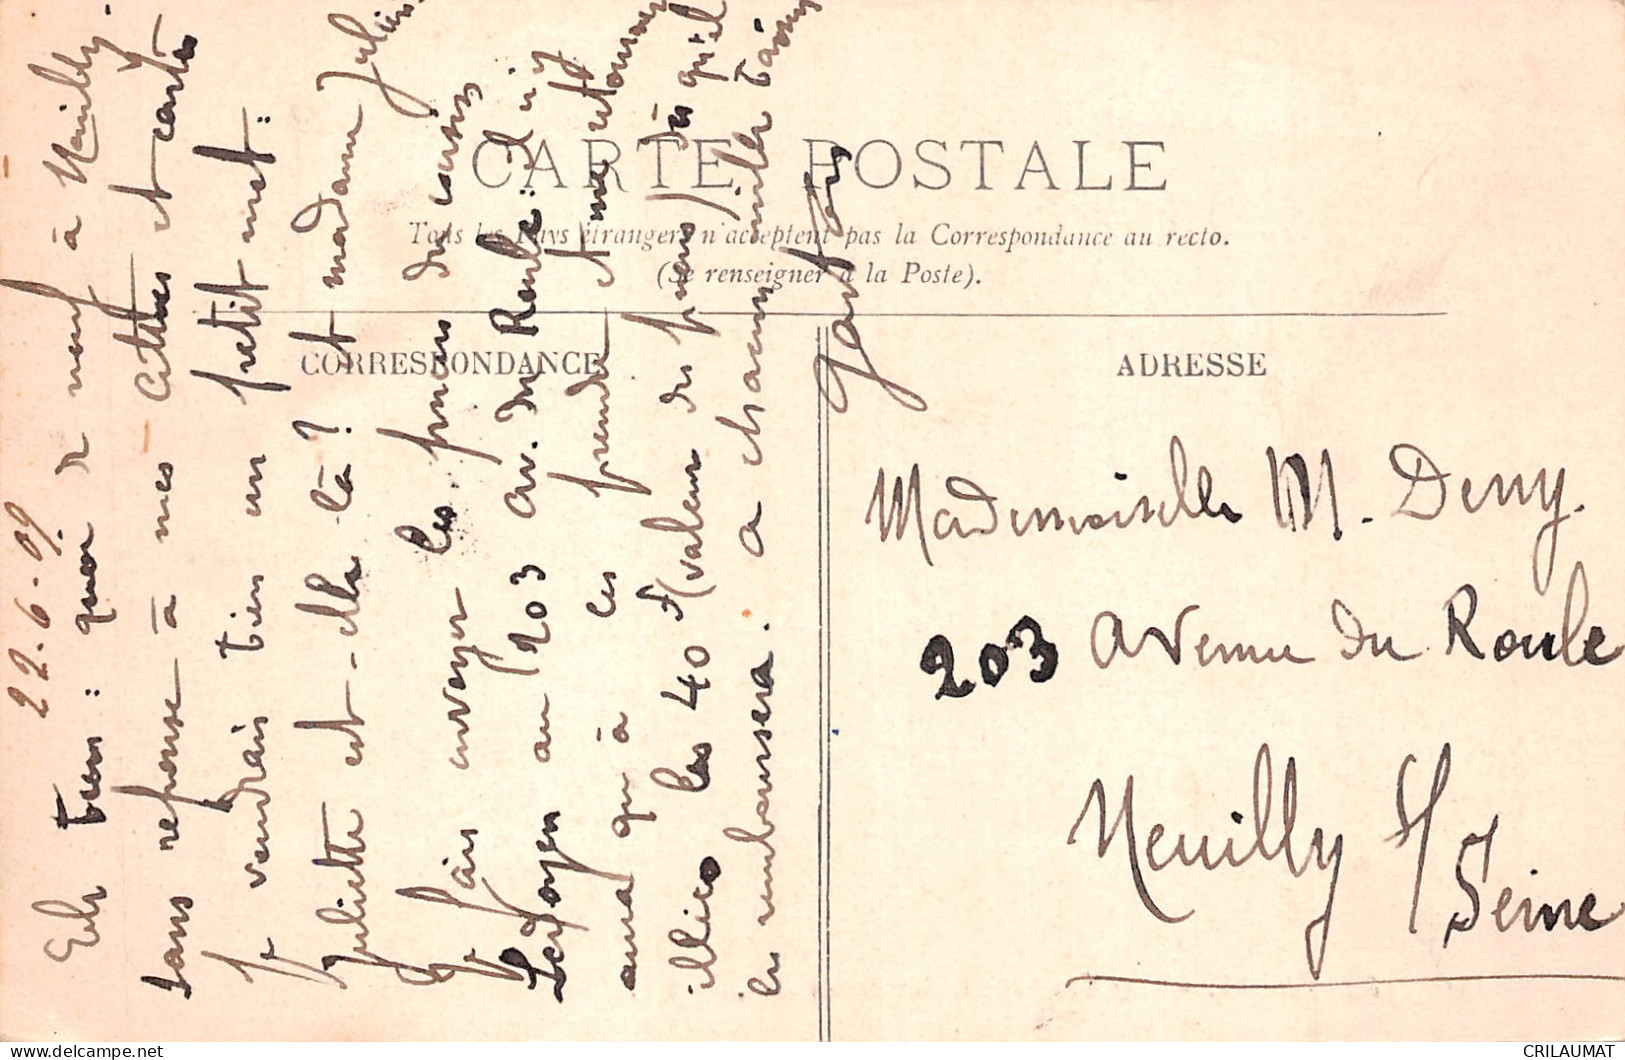 CARTE POSTALE
Tous les Pays étrangers n'acceptent pas la Correspondance au recto.
(Se renseigner à la Poste).
CORRESPONDANCE
ADRESSE
22-6-09
Eh bien : quoi de neuf à Neuilly
sans reponse à mes lettres et cartes
Je voudrais bien un petit mot :
Juliette est-elle là ? et madame Julien
Je fais envoyer les pneus du
Ledoyen au 203 av. du Roule : il n'y
aura qu'à les prendre et me retourner
illico les 40 f (valeur des pneus) dès qu'il
les remboursera. a chacun mille baisers
Gaston
Mademoiselle M. Deny.
203 avenue du Roule
Neuilly S/
Seine
CRILAUMAT